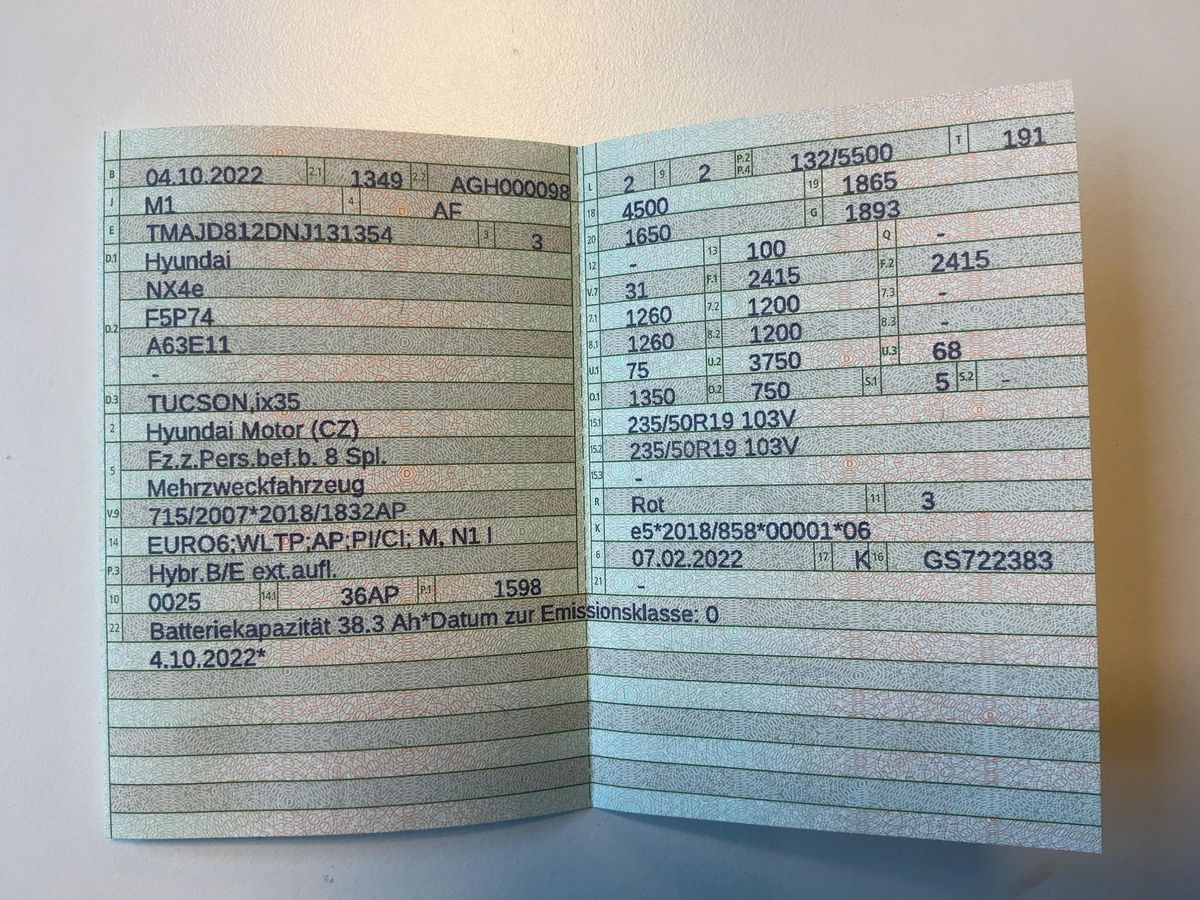 B 04.10.2022 2.1 1349 2.2 AGH000098
J M1 4 AF
E TMAJD812DNJ131354 3 3
D.1 Hyundai
NX4e
D.2 F5P74
A63E11
-
D.3 TUCSON,ix35
2 Hyundai Motor (CZ)
5 Fz.z.Pers.bef.b. 8 Spl.
Mehrzweckfahrzeug
V.9 715/2007*2018/1832AP
14 EURO6;WLTP;AP;PI/CI; M, N1 I
P.3 Hybr.B/E ext.aufl.
10 0025 14.1 36AP P.1 1598
22 Batteriekapazität 38.3 Ah*Datum zur Emissionsklasse: 0
4.10.2022*
L 2 9 2 P.2 P.4 132/5500 T 191
18 4500 19 1865
20 1650 G 1893
12 - 13 100 Q -
V.7 31 F.1 2415 F.2 2415
7.1 1260 7.2 1200 7.3 -
8.1 1260 8.2 1200 8.3 -
U.1 75 U.2 3750 U.3 68
O.1 1350 O.2 750 S.1 5 S.2 -
15.1 235/50R19 103V
15.2 235/50R19 103V
15.3 -
R Rot 11 3
K e5*2018/858*00001*06
6 07.02.2022 17 K 16 GS722383
21 -